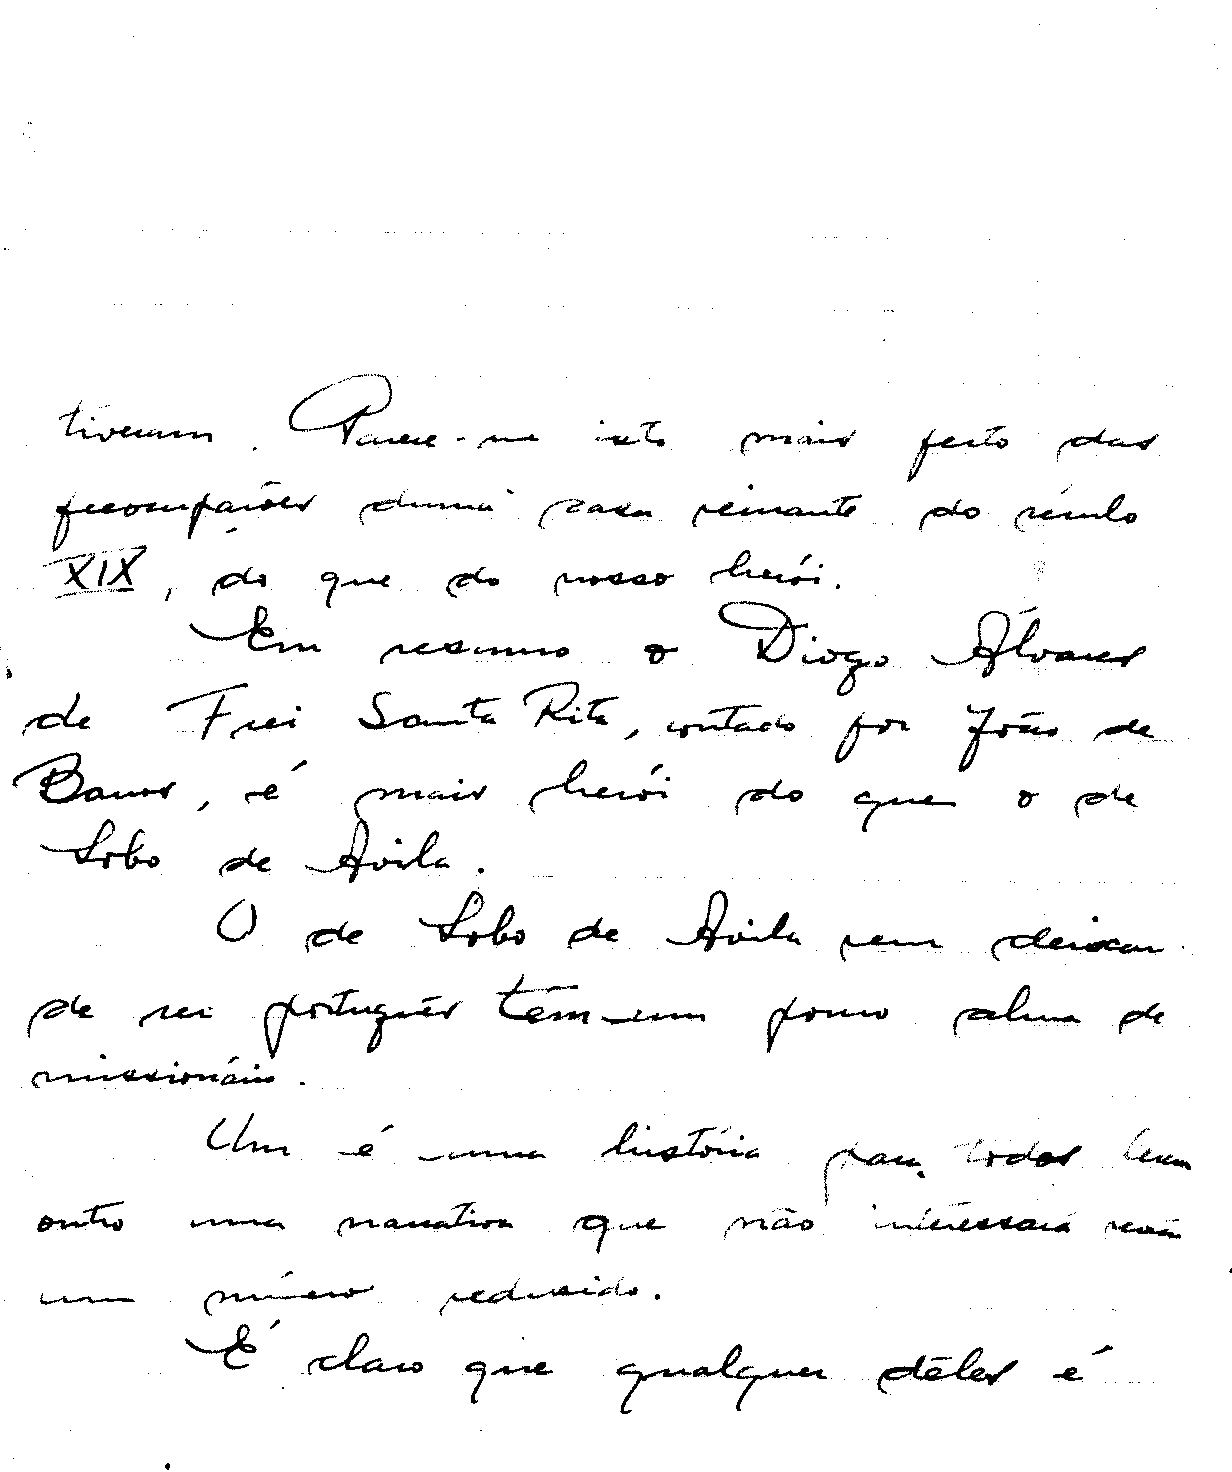 tiveram. Parece-me isto mais feito das
preocupações duma casa reinante do século
XIX, do que do nosso herói.
Em resumo o Diogo Álvares
de Frei Santa Rita, contado por João de
Barros, é mais herói do que o de
Lobo de Ávila.
O de Lobo de Ávila sem deixar
de ser português tem um pouco alma de
missionário.
Um é uma história para todos lerem
outro uma narrativa que não interessará senão
um número reduzido.
É claro que qualquer dêles é